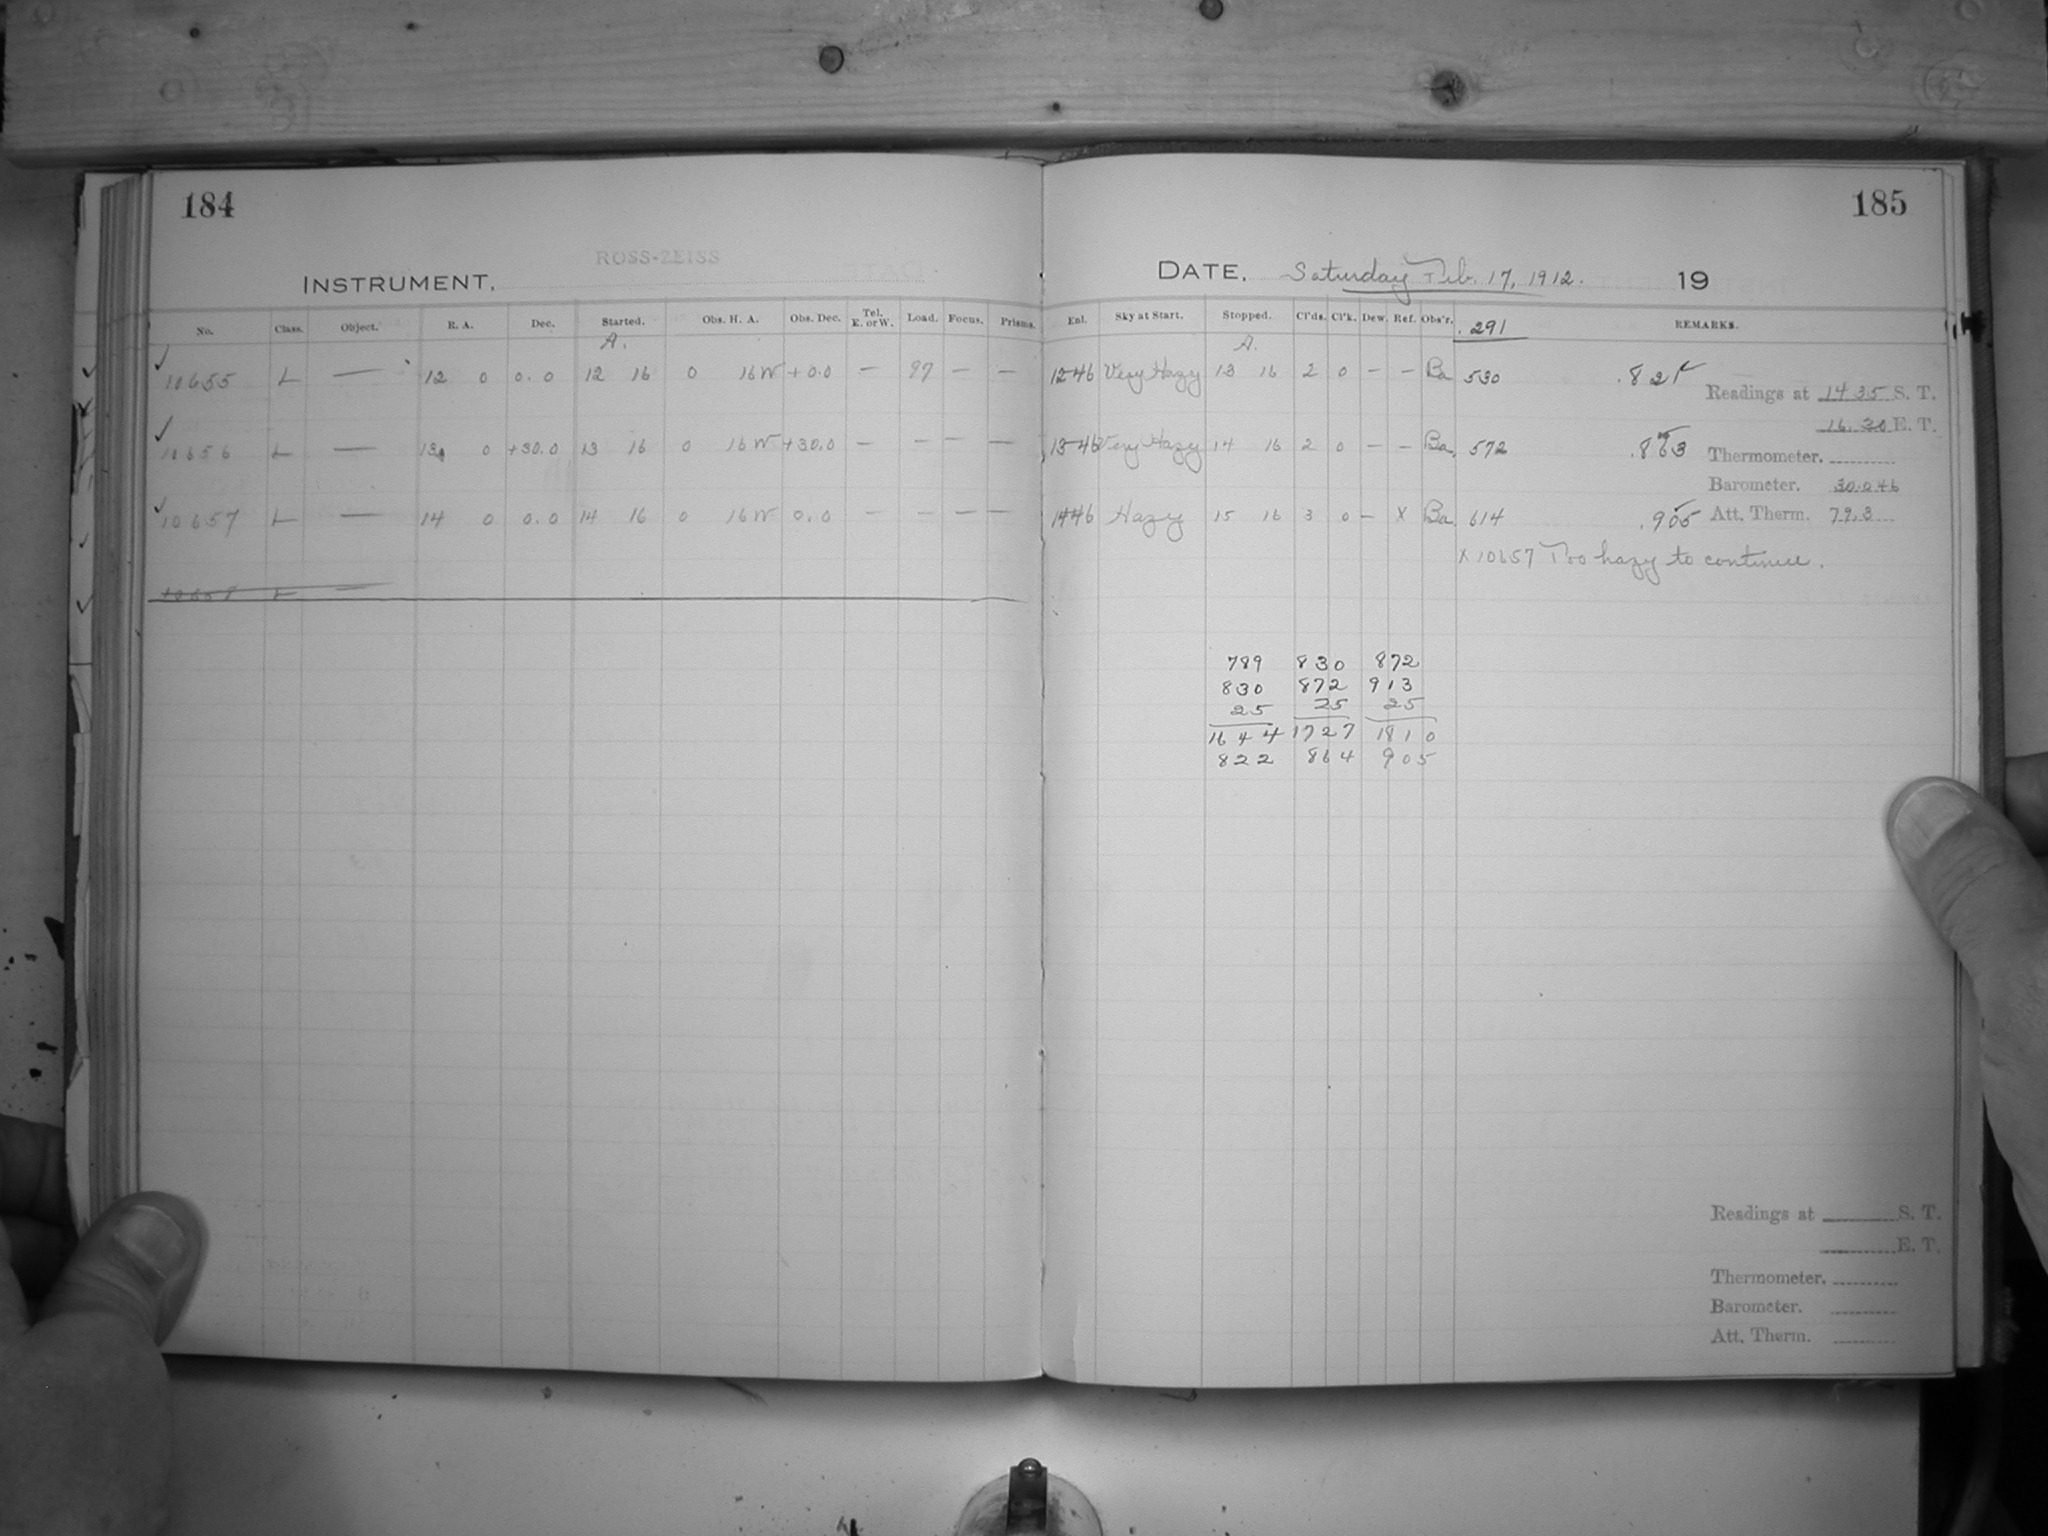 184
ROSS-ZEISS
INSTRUMENT,
No. Class. Object. R. A. Dec. Started. Obs. H. A. Obs. Dec. Tel. E. or W. Load. Focus. Prisms.
A.
10655 L — 12 0 0.0 12 16 0 16W +0.0 — 97 — —
10656 L — 13 0 +30.0 13 16 0 16W +30.0 — — — —
10657 L — 14 0 0.0 14 16 0 16W 0.0 — — — —
10658 L —
185
DATE, Saturday Feb. 17, 1912. 19
Enl. Sky at Start. Stopped. Cl'ds. Cl'k. Dew. Ref. Obs'r. .291 REMARKS.
A.
12 46 Very Hazy 13 16 2 0 — — Ba 530
Readings at 14 35 S. T.
16.30 E. T.
13 46 Very Hazy 14 16 2 0 — — Ba. 572
Thermometer.
Barometer. 30.046
14 46 Hazy 15 16 3 0 — X Ba 614 .905 Att. Therm. 79.3
X 10657 Too hazy to continue.
789 830 872
830 872 913
25 25 25
1644 1727 1810
822 864 905
Readings at S. T.
E. T.
Thermometer.
Barometer.
Att. Therm.